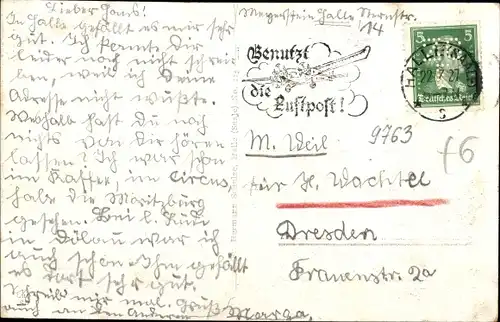 Lieber Hans!
In Halle gefällt es mir sehr
gut. Ich konnte Dir
leider noch nicht schrei
ben, weil ich Deine
Adresse nicht wußte.
Weshalb hast du noch
nichts von Dir hören
lassen? Ich war schon
im Kaffee, im Circus,
habe die Moritzburg
gesehen. Bei l. Rudi
in Dölau war ich
auch schon. Ihm gefällt
es dort sehr gut.
Schreib mir mal. Gruß
auch an den Anderen
Marga.
Meyerstein Halle Sternstr.
14
Benutzt
die
Luftpost!
HALLE (SAALE)
22 3 27
5 5
Deutsches Reich
M. Weil
9763
für H. Wachtel
Dresden
Frauenstr. 2a
£6